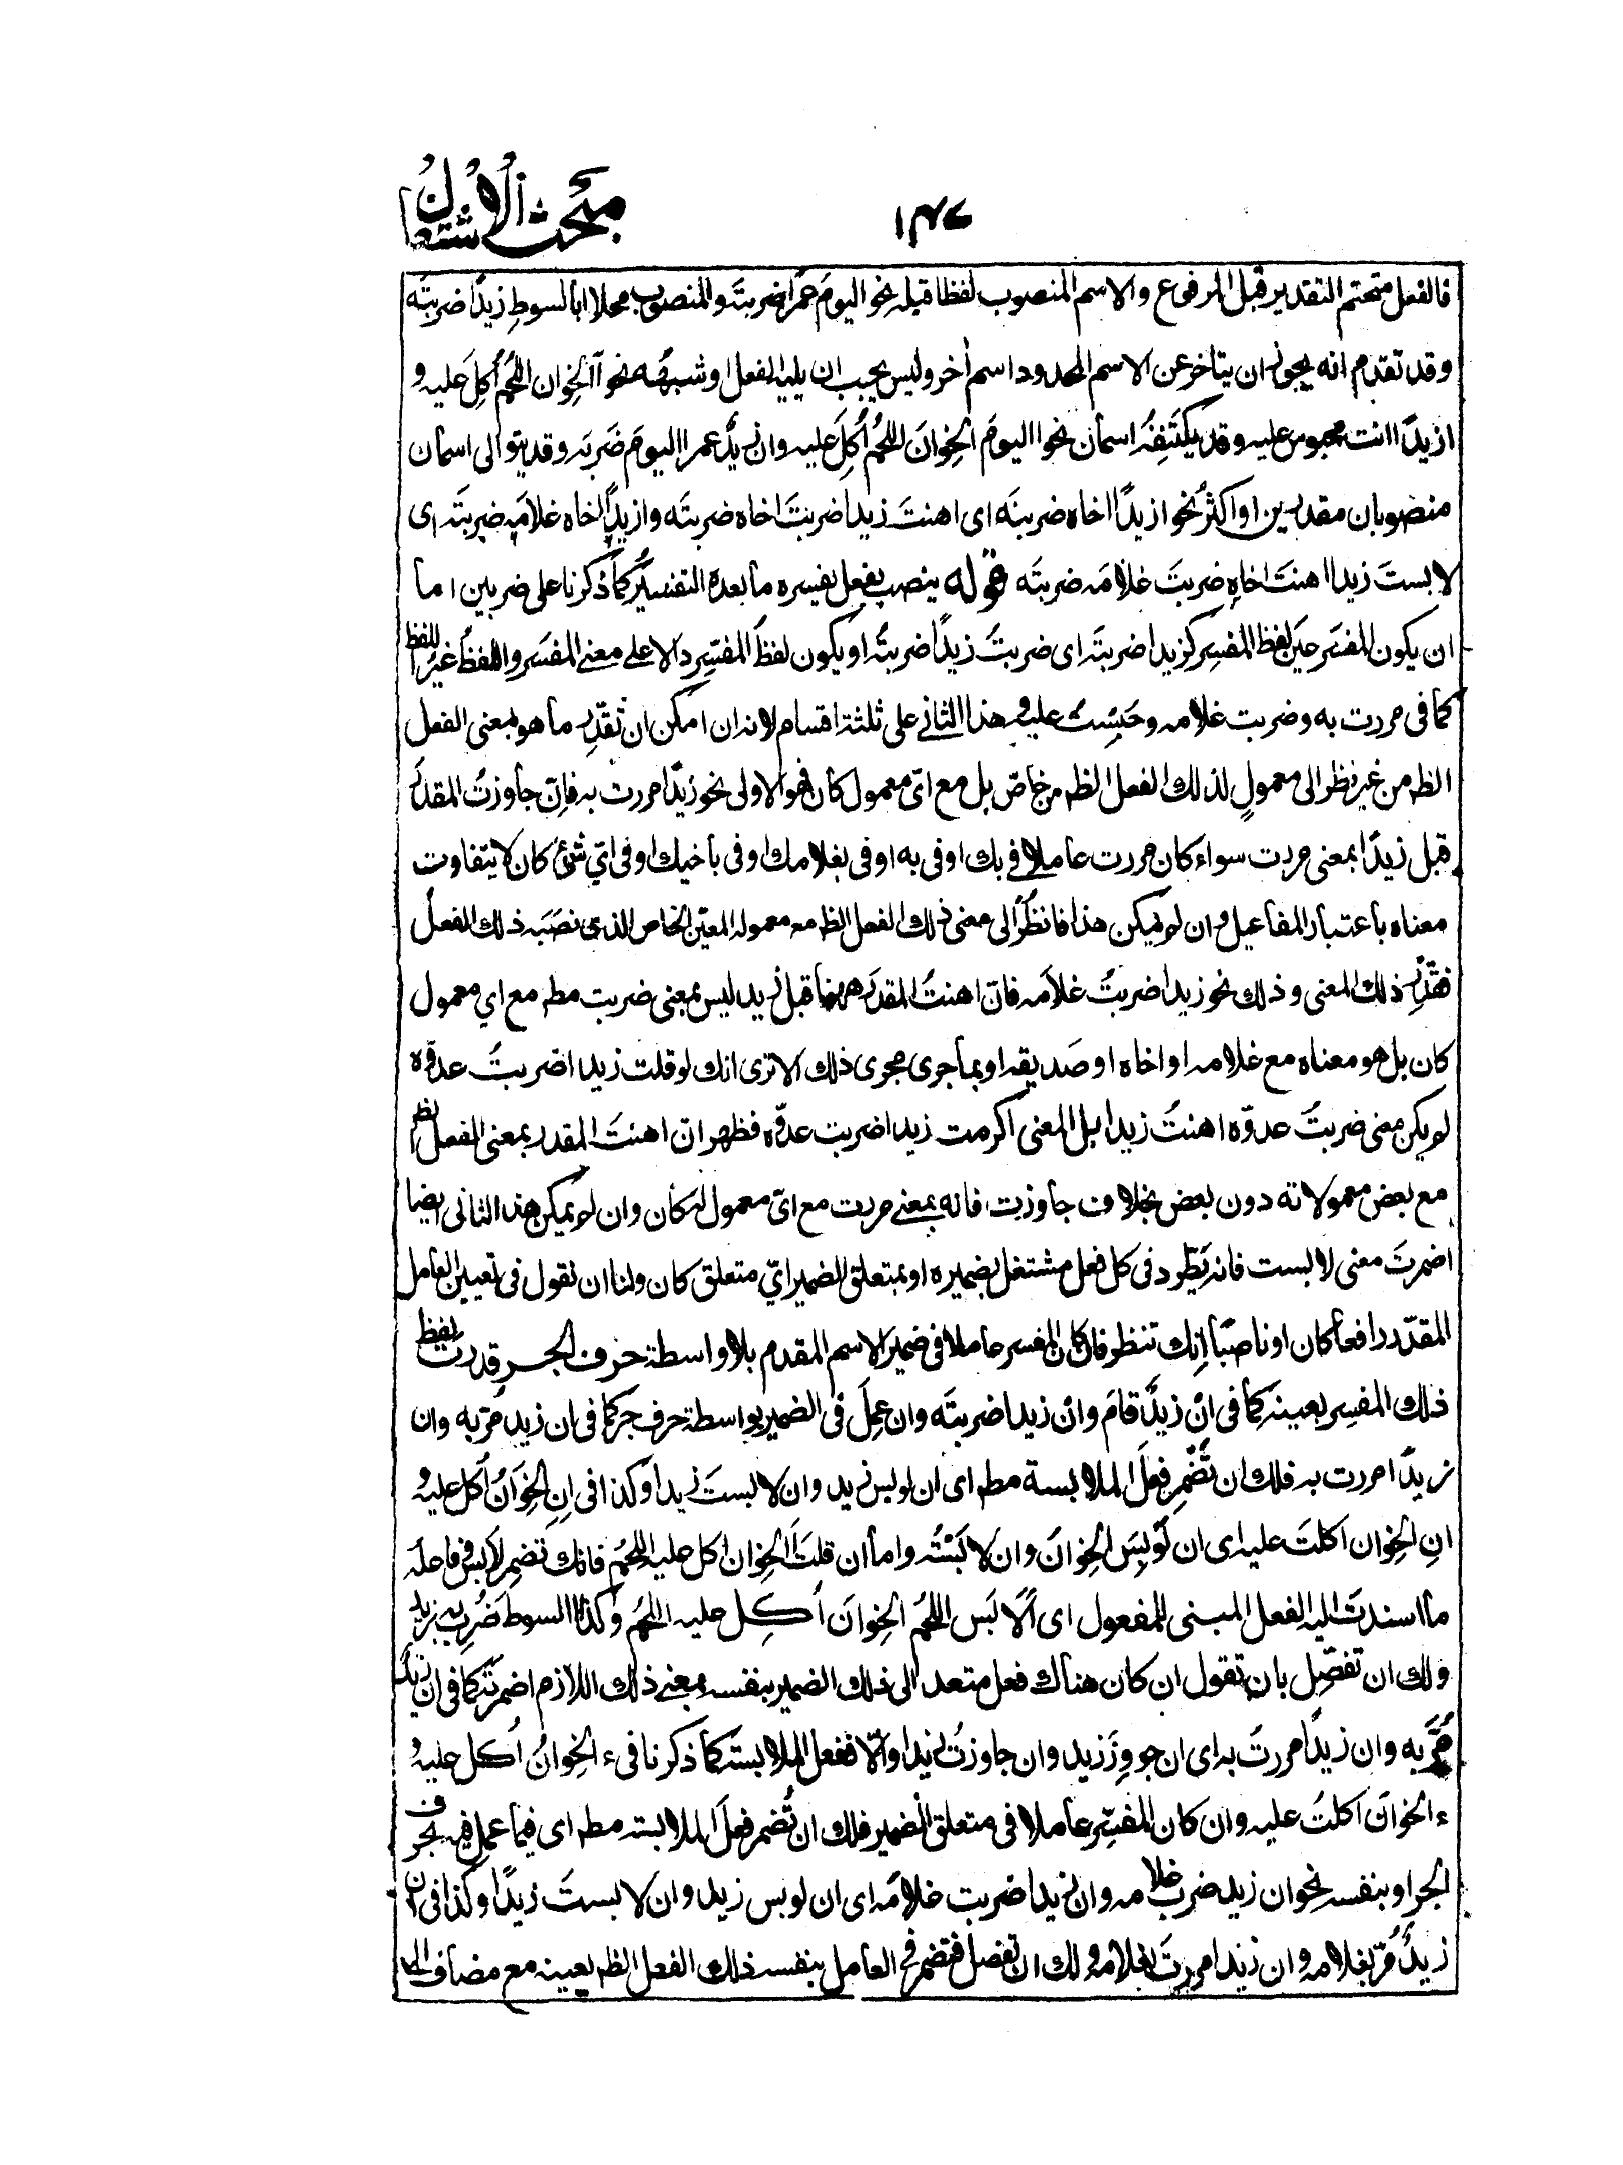 ١٤٧
مبحث الاشتغال
فالفعل متحتم التقدير قبل المرفوع والاسم المنصوب لفظا قبله نحو اليومَ عمرًا ضربتَه والمنصوب محلا ابالسوطِ زيدًا ضربتَه
وقد تقدم انه يجوز ان يتاخر عن الاسم المحدود اسم اٰخر وليس يجب ان يليه الفعل او شبهُه نحو آلخِوان اللحمُ اُكِلَ عليه و
ازيدًا انت محبوس عليه وقد يكتَنِفُه اسمان نحو االيومَ الخِوانَ اللحمُ اُكِلَ عليه وان زيدٌ عمرا اليومَ ضَرَبَه وقد يتوالى اسمان
منصوبان مقدرين او اكثرُ نحو ازيدًا اخاه ضربتَه اى اهنتَ زيدا ضربتَ اخاه ضربتَه وازيدًا اخاه غلامَه ضربتَه اى
لابستَ زيدا اهنتَ اخاه ضربتَ غلامَه ضربتَه قوله ينصب بفعل يفسره ما بعده التفسيرُ كما ذكرنا على ضربين اما
ان يكون المفسَر عينَ لفظ المفسِر كزيدا ضربتَه اى ضربتُ زيدًا ضربتُه او يكون لفظُ المفسِر دالا على معنى المفسَر واللفظُ غيرُ اللفظ
كما فى مررت به وضربت غلامه وحُبِستُ عليه وهذا الثانى على ثلثة اقسام لانه ان امكن ان تقدِّر ما هو بمعنى الفعل
الظه من غير نظر الى معمولٍ لذلك الفعل الظه خاصّ بل مع اىّ معمول كان فهو الاولى نحو زيدًا مررت به فاِنّ جاوزتُ المقدَّرَ
قبل زيدًا بمعنى مررت سواء كان مررت عاملا فى بك او فى به او فى بغلامك او فى باخيك او فى اىّ شئ كان لا يتفاوت
معناه باعتبار المفاعيل وان لم يمكن هذا فانظُرْ الى معنى ذلك الفعل الظه مع معموله المعيّن الخاص الذى نصَبَه ذلك الفعلُ
فقدِّرْ ذلك المعنى وذلك نحو زيدا ضربتُ غلامَه فان اهنتُ المقدرَ ههنا قبل زيد ليس بمعنى ضربت مطه مع اى معمول
كان بل هو معناه مع غلامه او اخاه او صديقه او بما جرى مجرى ذلك الا ترى انك لو قلت زيدا ضربتُ عدوَّه
لم يكن معنى ضربتُ عدوّه اهنتُ زيدا بل المعنى اكرمت زيدا ضربت عدوّه فظهر ان اهنتَ المقدر بمعنى الفعل الظه
مع بعض معمولاته دون بعض بخلاف جاوزت فانه بمعنى مررت مع اىّ معمول كان وان لم يمكن هذا الثانى ايضا
اضمرتَ معنى لابست فانه يَطّرد فى كل فعل مشتغل بضميره او بمتعلق الضمير اىّ متعلق كان ولنا ان نقول فى تعيين العامل
المقدّر رافعا كان او ناصبًا اِنك تنظر فان كان المفسر عاملا فى ضمير الاسم المقدم بلا واسطة حرف الجر قدرت لفظ
ذلك المفسِر بعينه كما فى انْ زيدٌ قامَ وانْ زيدا ضربتَه وان عمِلَ فى الضمير بواسطة حرف جر كما فى ان زيد مُرّ به وان
زيدًا مررت به فلك ان تُضمِر فعلَ الملابسة مطه اى ان لوبس زيد وان لابستَ زيدا وكذا فى انِ الخِوَانُ اُكل عليهُ
انِ الخِوان اكلتَ عليه اى ان لُوبِسَ الخِوانَ وان لابَسْتَه واما ان قلتَ آلخِوانَ اكل عليه اللحمُ فانك تضمِر لابس فاعله
ما اسندتَ اليه الفعل المبنى للمفعول اى ألابَس اللحمُ الخِوانَ اُكِل عليه اللحمُ وكذا االسوط ضُرِب به زيد
ولك ان تفصّل بان تقول ان كان هناك فعل متعد الى ذلك الضمير بنفسه بمعنى ذلك اللازم اضمرتَه كما فى ان زيدٌ
مُرَّ به وان زيدًا مررتَ به اى ان جووِزَ زيد وان جاوزتَ زيدا واِلّا ففعل الملابسة كما ذكرنا فى ء الخِوانُ اُكل عليهُ
ء الخوانَ اكلتَ عليه وان كان المفسّر عاملا فى متعلق الضمير فلك ان تُضمر فعلَ الملابسة مطه اى فيما عمِل فيه بحرف
الجر او بنفسه نحو ان زيد ضرب غلامه وان زيدا ضربت غلامَه اى ان لوبس زيد وان لابستَ زيدًا وكذا فى ان
زيدٌ مُرّ بغلامه وان زيدا مررتَ بغلامه ولك ان تفصل فتضمر فى العامل بنفسه ذلك الفعل الظه بعينه مع مضاف الى